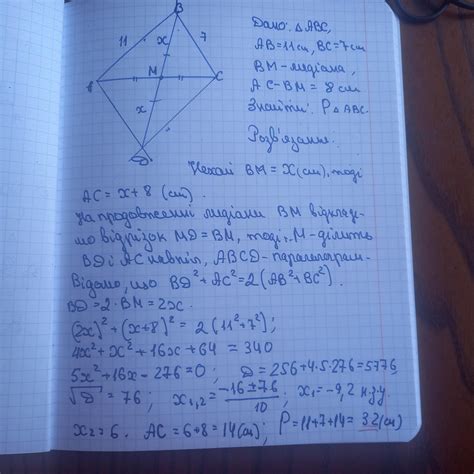 B
11
x
7
A
M
C
x
D
Дано: △ABC,
AB=11см, BC=7см
BM-медіана,
AC-BM=8см
Знайти: P△ABC.
Розв'язання.
Нехай BM=x(см), тоді
AC=x+8 (см).
На продовженні медіани BM відкладе-
мо відрізок MD=BM, тоді т.M-ділить
BD і AC навпіл, ABCD-паралелограм.
Відомо, що BD²+AC²=2(AB²+BC²).
BD=2·BM=2x.
(2x)²+(x+8)²=2(11²+7²);
4x²+x²+16x+64=340
5x²+16x-276=0; D=256+4·5·276=5776,
√D=76; x₁,₂=-16±76/10; x₁=-9,2 н.з.у.
x₂=6. AC=6+8=14(см); P=11+7+14=32(см)